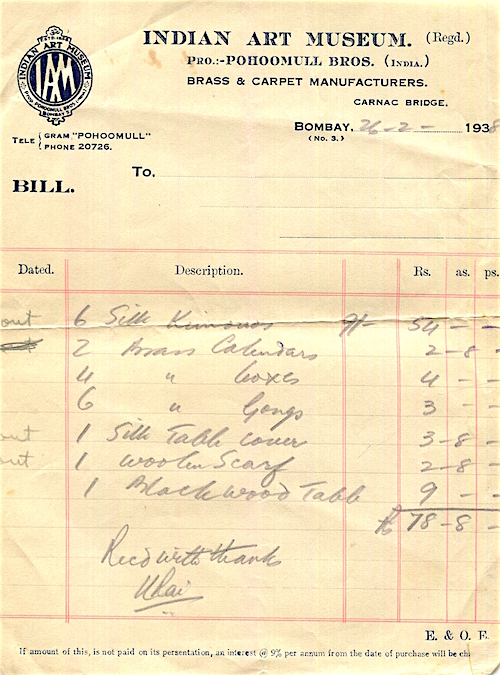 ESTD 1858
INDIAN ART MUSEUM
IAM
PROP. POHOOMULL BROS. (INDIA)
BOMBAY
INDIAN ART MUSEUM. (Regd.)
PRO.:-POHOOMULL BROS. (INDIA.)
BRASS & CARPET MANUFACTURERS.
CARNAC BRIDGE.
BOMBAY, 26-2- 1938
(NO. 3.)
TELE { GRAM. "POHOOMULL"
PHONE 20726.
To,
BILL.
Dated. Description. Rs. as. ps.
out 6 Silk Kimonos 9/- 54 - -
2 Brass Calendars 2 - 8 -
4 " boxes 4 - -
6 " Gongs 3 - -
out 1 Silk Table cover 3 - 8 -
out 1 woolen Scarf 2 - 8 -
1 Blackwood Table 9 - -
Rs 78 - 8 -
Recd with thanks
E. & O. E.
If amount of this, is not paid on its persentation, an interest @ 9% per annum from the date of purchase will be